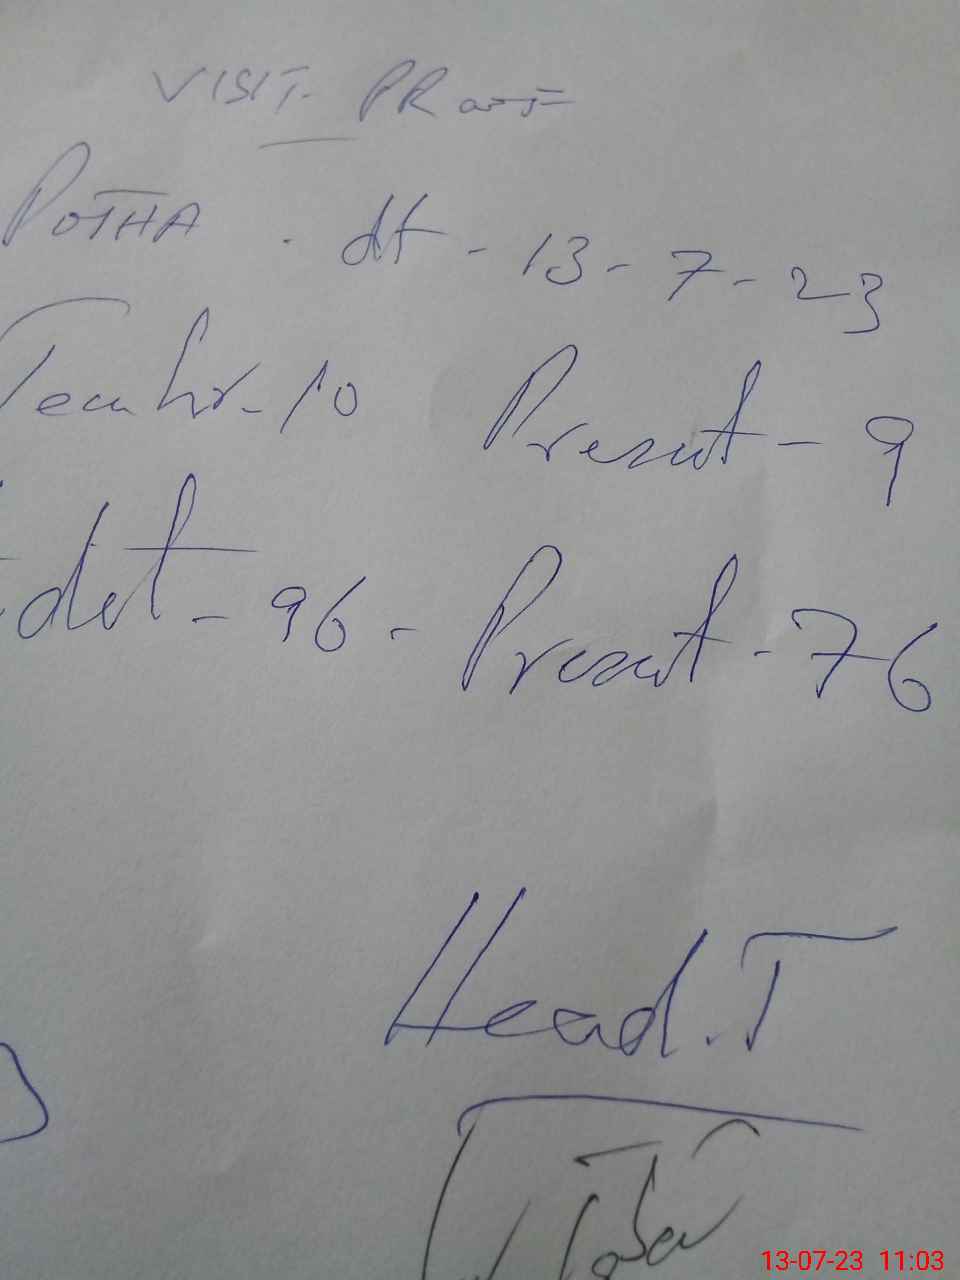 VISIT. PR
POTHA . dt - 13 - 7 - 23
Teacher - 10 Present - 9
det - 96 - Present - 76
Head.T
13-07-23 11:03